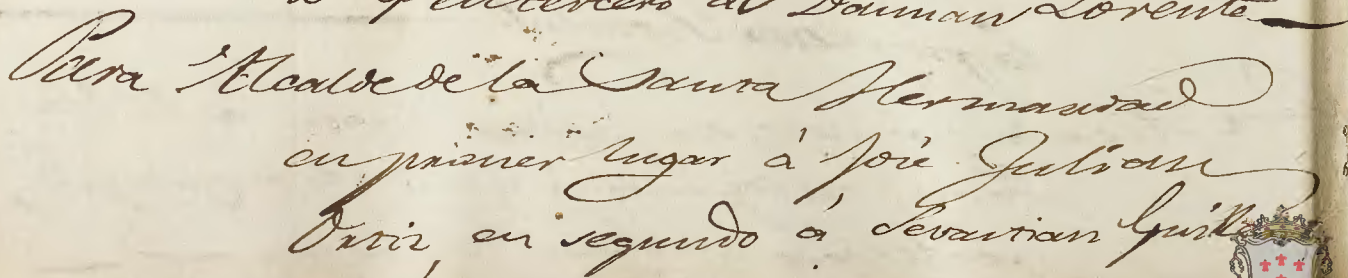 y en tercero a Damian Lorente
Para Alcalde de la Santa Hermandad
en primer lugar à José Julian
Ortiz, en segundo à Sevastian